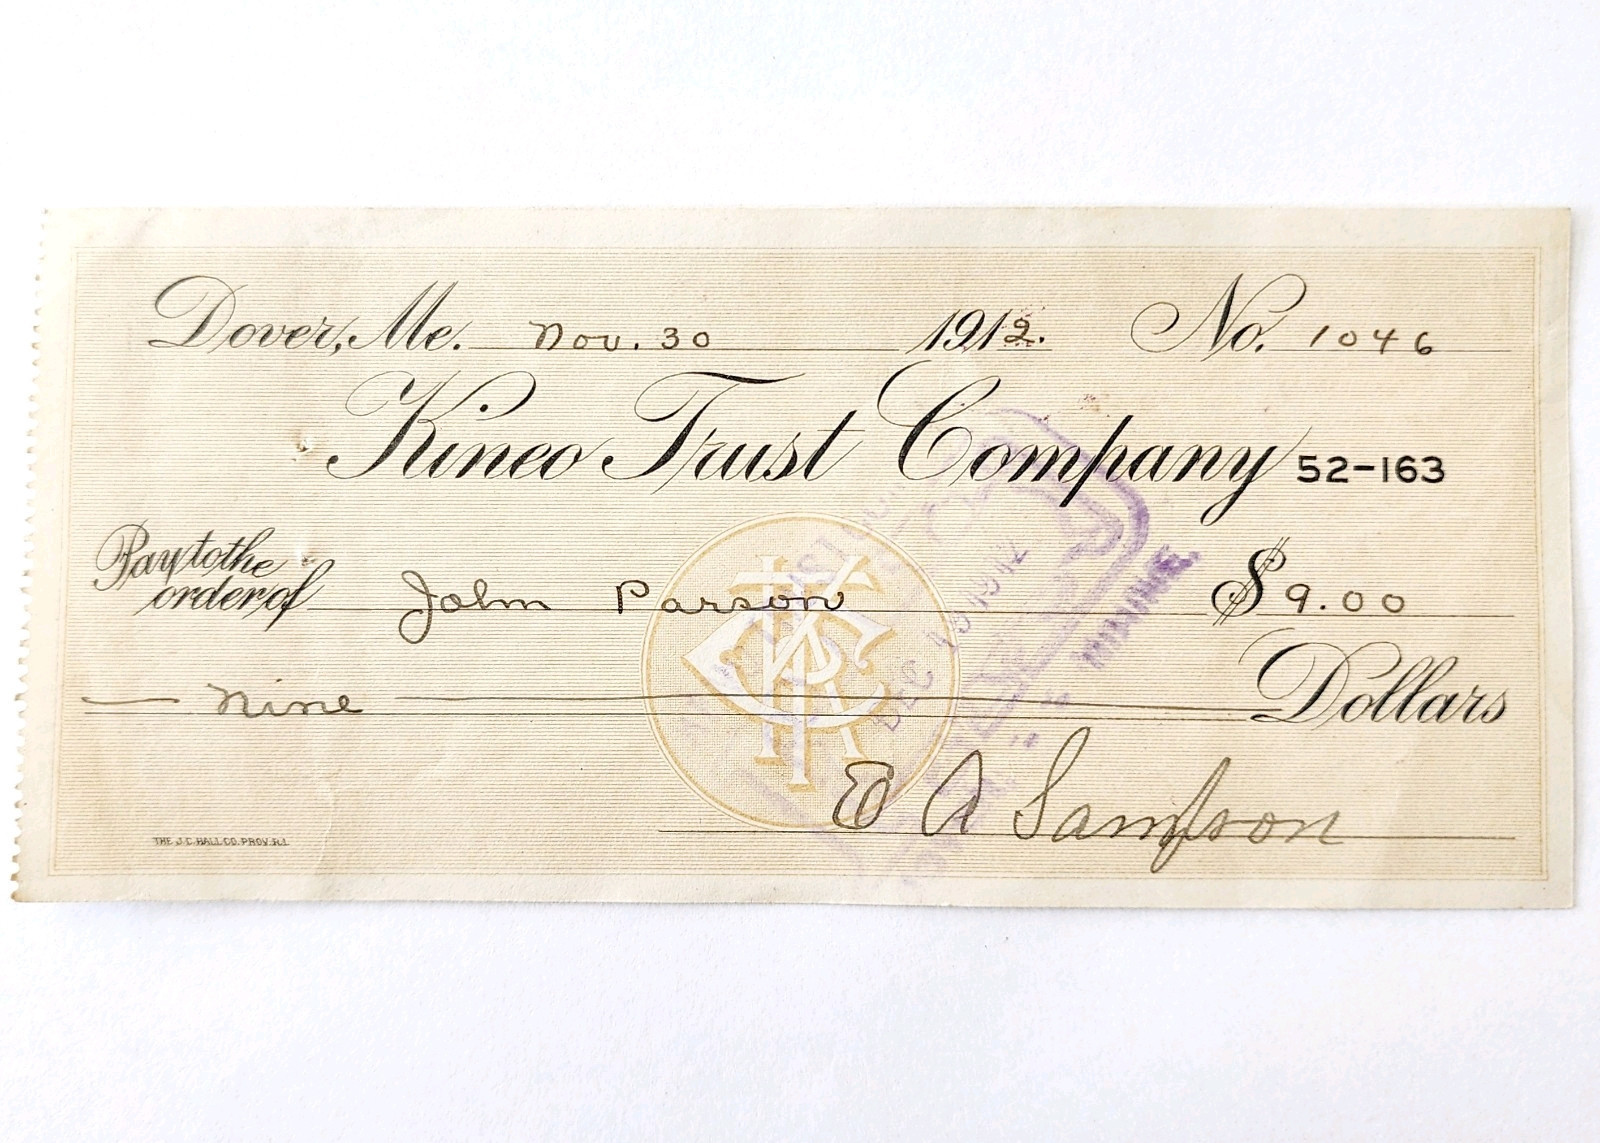 Dover, Me. Nov. 30 1912. No. 1046
Kineo Trust Company 52-163
Pay to the order of John Parson $9.00
Nine Dollars
E A Sampson
THE J.C. HALL CO. PROV. R.I.
KTCo
DEC 1912